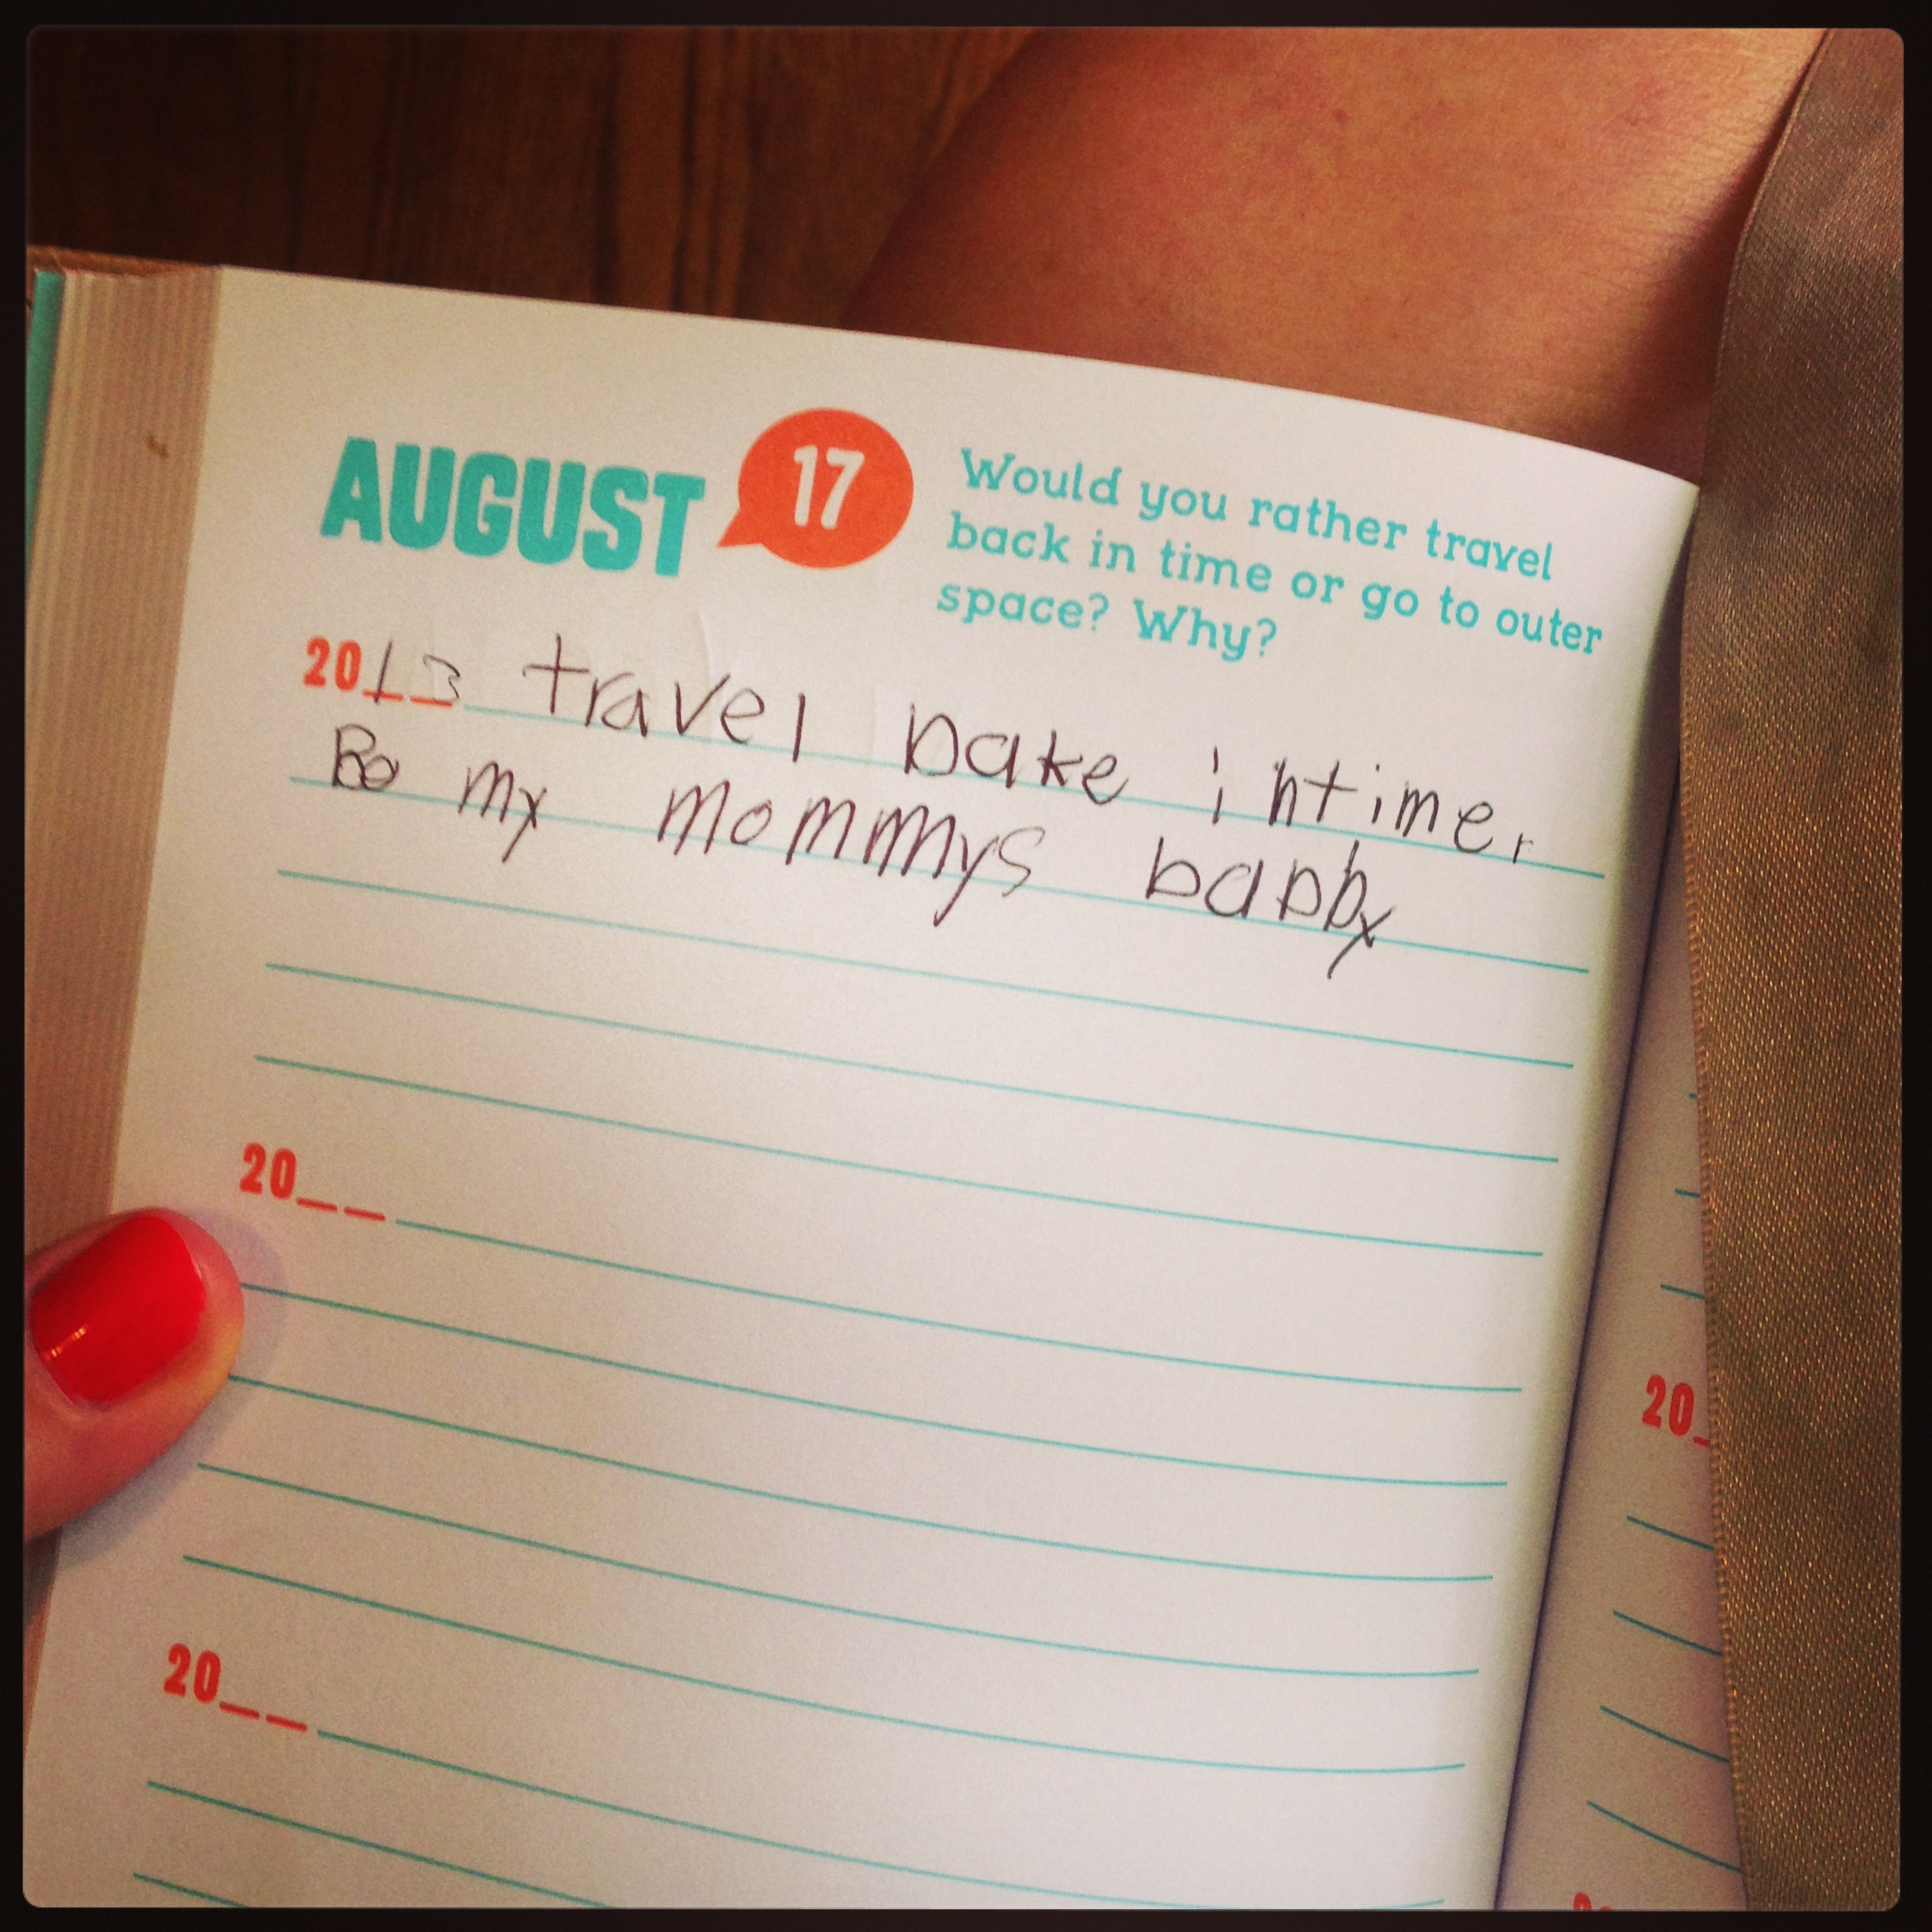 AUGUST 17
Would you rather travel
back in time or go to outer
space? Why?
2013 travel bake in time,
Be my mommys babby
20__
20__
20_